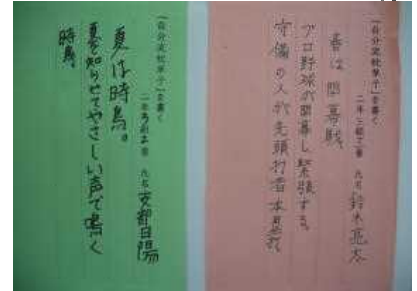 「自分流枕草子」を書く
二年三組２番 氏名 鈴木亮太
春は開幕戦
プロ野球が開幕し緊張する。
守備の人が先頭打者本塁打
「自分流枕草子」を書く
二年 番 氏名 日陽
夏は時鳥。
夏を知らせてやさしい声で鳴く
時鳥。